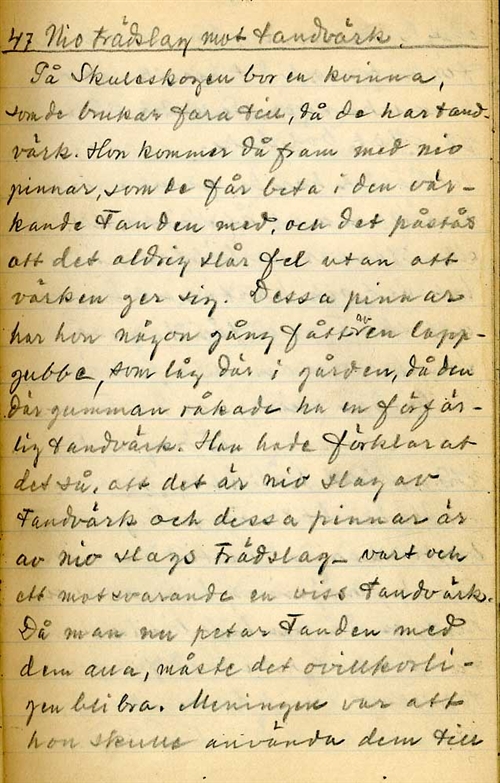 47 Nio trädslag mot tandvärk.
På Skuleskogen bor en kvinna,
som de brukar fara till, då de har tand-
värk. Hon kommer då fram med nio
pinnar, som de får beta i den vär-
kande tanden med, och det påstås
att det aldrig slår fel utan att
värken ger sig. Dessa pinnar
har hon någon gång fått av en lapp-
gubbe, som låg där i gården, då den
där gumman råkade ha en förfär-
lig tandvärk. Han hade förklarat
det så, att det är nio slag av
tandvärk och dessa pinnar är
av nio slags trädslag – vart och
ett motsvarande en viss tandvärk.
Då man nu petar tanden med
dem alla, måste det ovillkorli-
gen bli bra. Meningen var att
hon skulle använda dem till